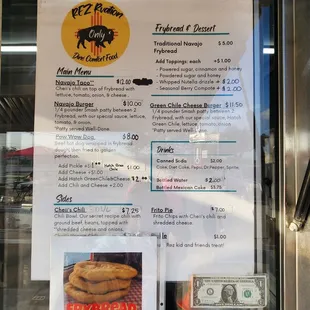 REZ Ration
Only
Dine Comfort Food
Main Menu
Navajo Taco $12.00
Chei's chili on top of Frybread with
lettuce, tomato, onion, & cheese.
Navajo Burger $10.00
1/4 pounder Smash patty between 2
frybread, with our special sauce, lettuce,
tomato, & onion.
*Patty served Well-Done
Paw Wow Dog $8.00
Beef hot dog wrapped in frybread
dough, then fried to golden
perfection.
Add Pickle
Add Cheese +$1.00
Add Hatch Green Chile&Cheese
Add Chili and Cheese +2.00
Sides
Chei's Chili $7.25
Chili Bowl. Our secret recipe chili with
ground beef, beans, topped with
shredded cheese and onions.
Frybread & Dessert
Traditional Navajo $5.00
Frybread
Add Toppings: each +$1.00
- Powdered sugar, cinnamon and honey
- Powdered sugar and honey
- Whipped Nutella drizzle +$2.00
- Seasonal Berry Compote +$2.00
Green Chile Cheese Burger $11.50
1/4 pounder Smash patty between 2
frybread, with our special sauce, Hatch
Green Chile, lettuce, tomato, onion.
*Patty served Well
Drinks
Canned Soda $2.00
Coke, Diet Coke, Fanta, Dr.Pepper, Sprite
Bottled Water $2.00
Bottled Mexican Coke $3.75
Frito Pie $7.00
Frito Chips with Chei's chili and
shredded cheese.
Rez kid and friends treat!
FRYBREAD